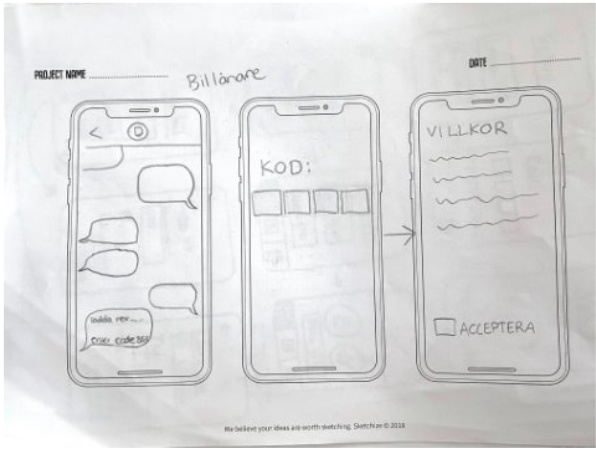 PROJECT NAME
Billånare
DATE
D
enter code
KOD:
VILLKOR
ACCEPTERA
We believe your ideas are worth sketching. Sketchize © 2018